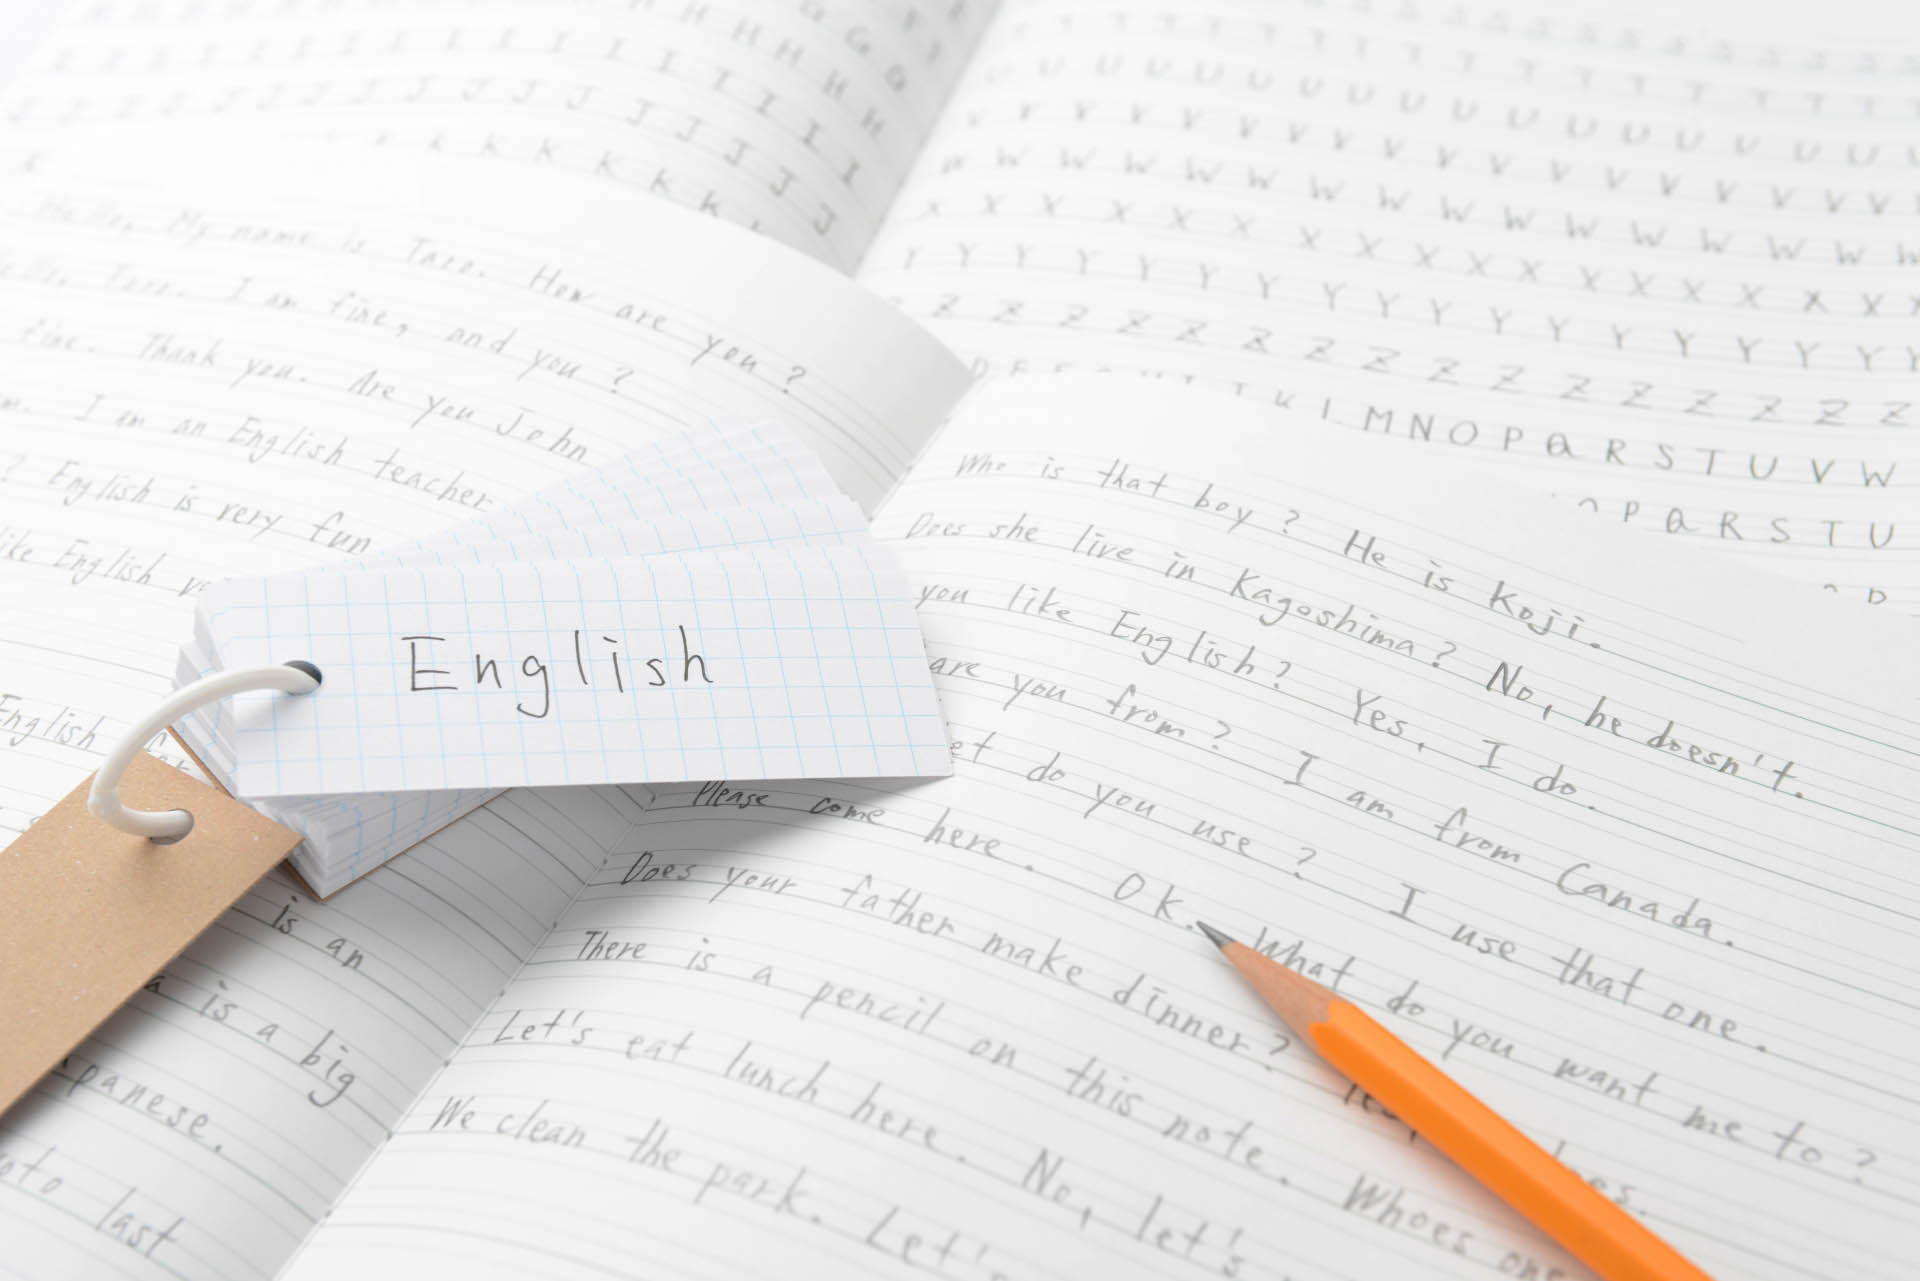 H H H H H H G G
I I I I I I I I I I I I I I I
J J J J J J J J J J J J
K K K K K K
Hello, My name is Taro. How are you?
Taro. I am fine, and you?
fine. Thank you. Are you John
I am an English teacher
? English is very fun
like English
English
English
is an
a is a big
last
T T T T T T T T T T T T T T T
U U U U U U U U U U U U U U U U
V V V V V V V V V V V V V V V V
W W W W W W W W W W W W W W W
X X X X X X X X X X X X X X X
Y Y Y Y Y Y Y Y Y Y Y Y Y Y Y
Z Z Z Z Z Z Z Z Z Z Z Z Z Z Z
M N O P Q R S T U V W
P Q R S T U
Who is that boy? He is Koji.
Does she live in Kagoshima? No, he doesn't.
you like English? Yes, I do.
are you from? I am from Canada.
do you use? I use that one.
Please come here. Ok. What do you want me to?
Does your father make dinner?
There is a pencil on this note. Whoes one
Let's eat lunch here. No, let's
We clean the park. Let's